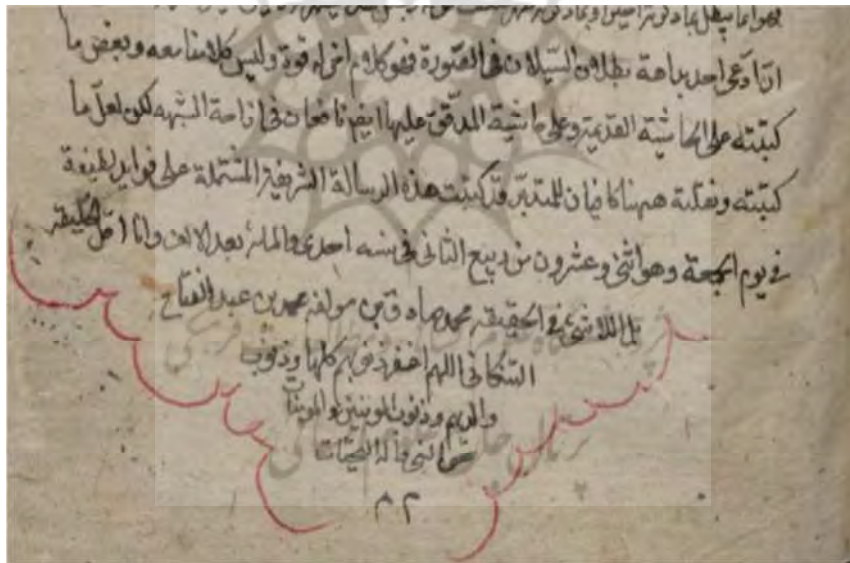 ادّعى احد بداهة بطلان السّيلان فى الصّورة فهو كلام اخر له قوة وليس كلامنا معه وبعض ما
كتبته على الحاشية القديمة وعلى حاشية المدقق عليها ايضا نافعان فى ازاحة الشبهه لكن لعلّ ما
كتبته ونقلته ههنا كافيان للمتدبّر قد كتبت هذه الرسالة الشريفة المشتملة على فوايد لطيفة
فى يوم الجمعة وهو اثنى وعشرون من ربيع الثانى فى سنه احدى والمائة بعد الالف وانا اقل الخليقة
بل اللا شىء فى الحقيقه محمد بن مولفه محمد بن عبد الفتاح
التنكابنى اللهم اغفر ذنوبهم كلها وذنوب
والديهم وذنوب المومنين والمومنات
بحق النبى وآله